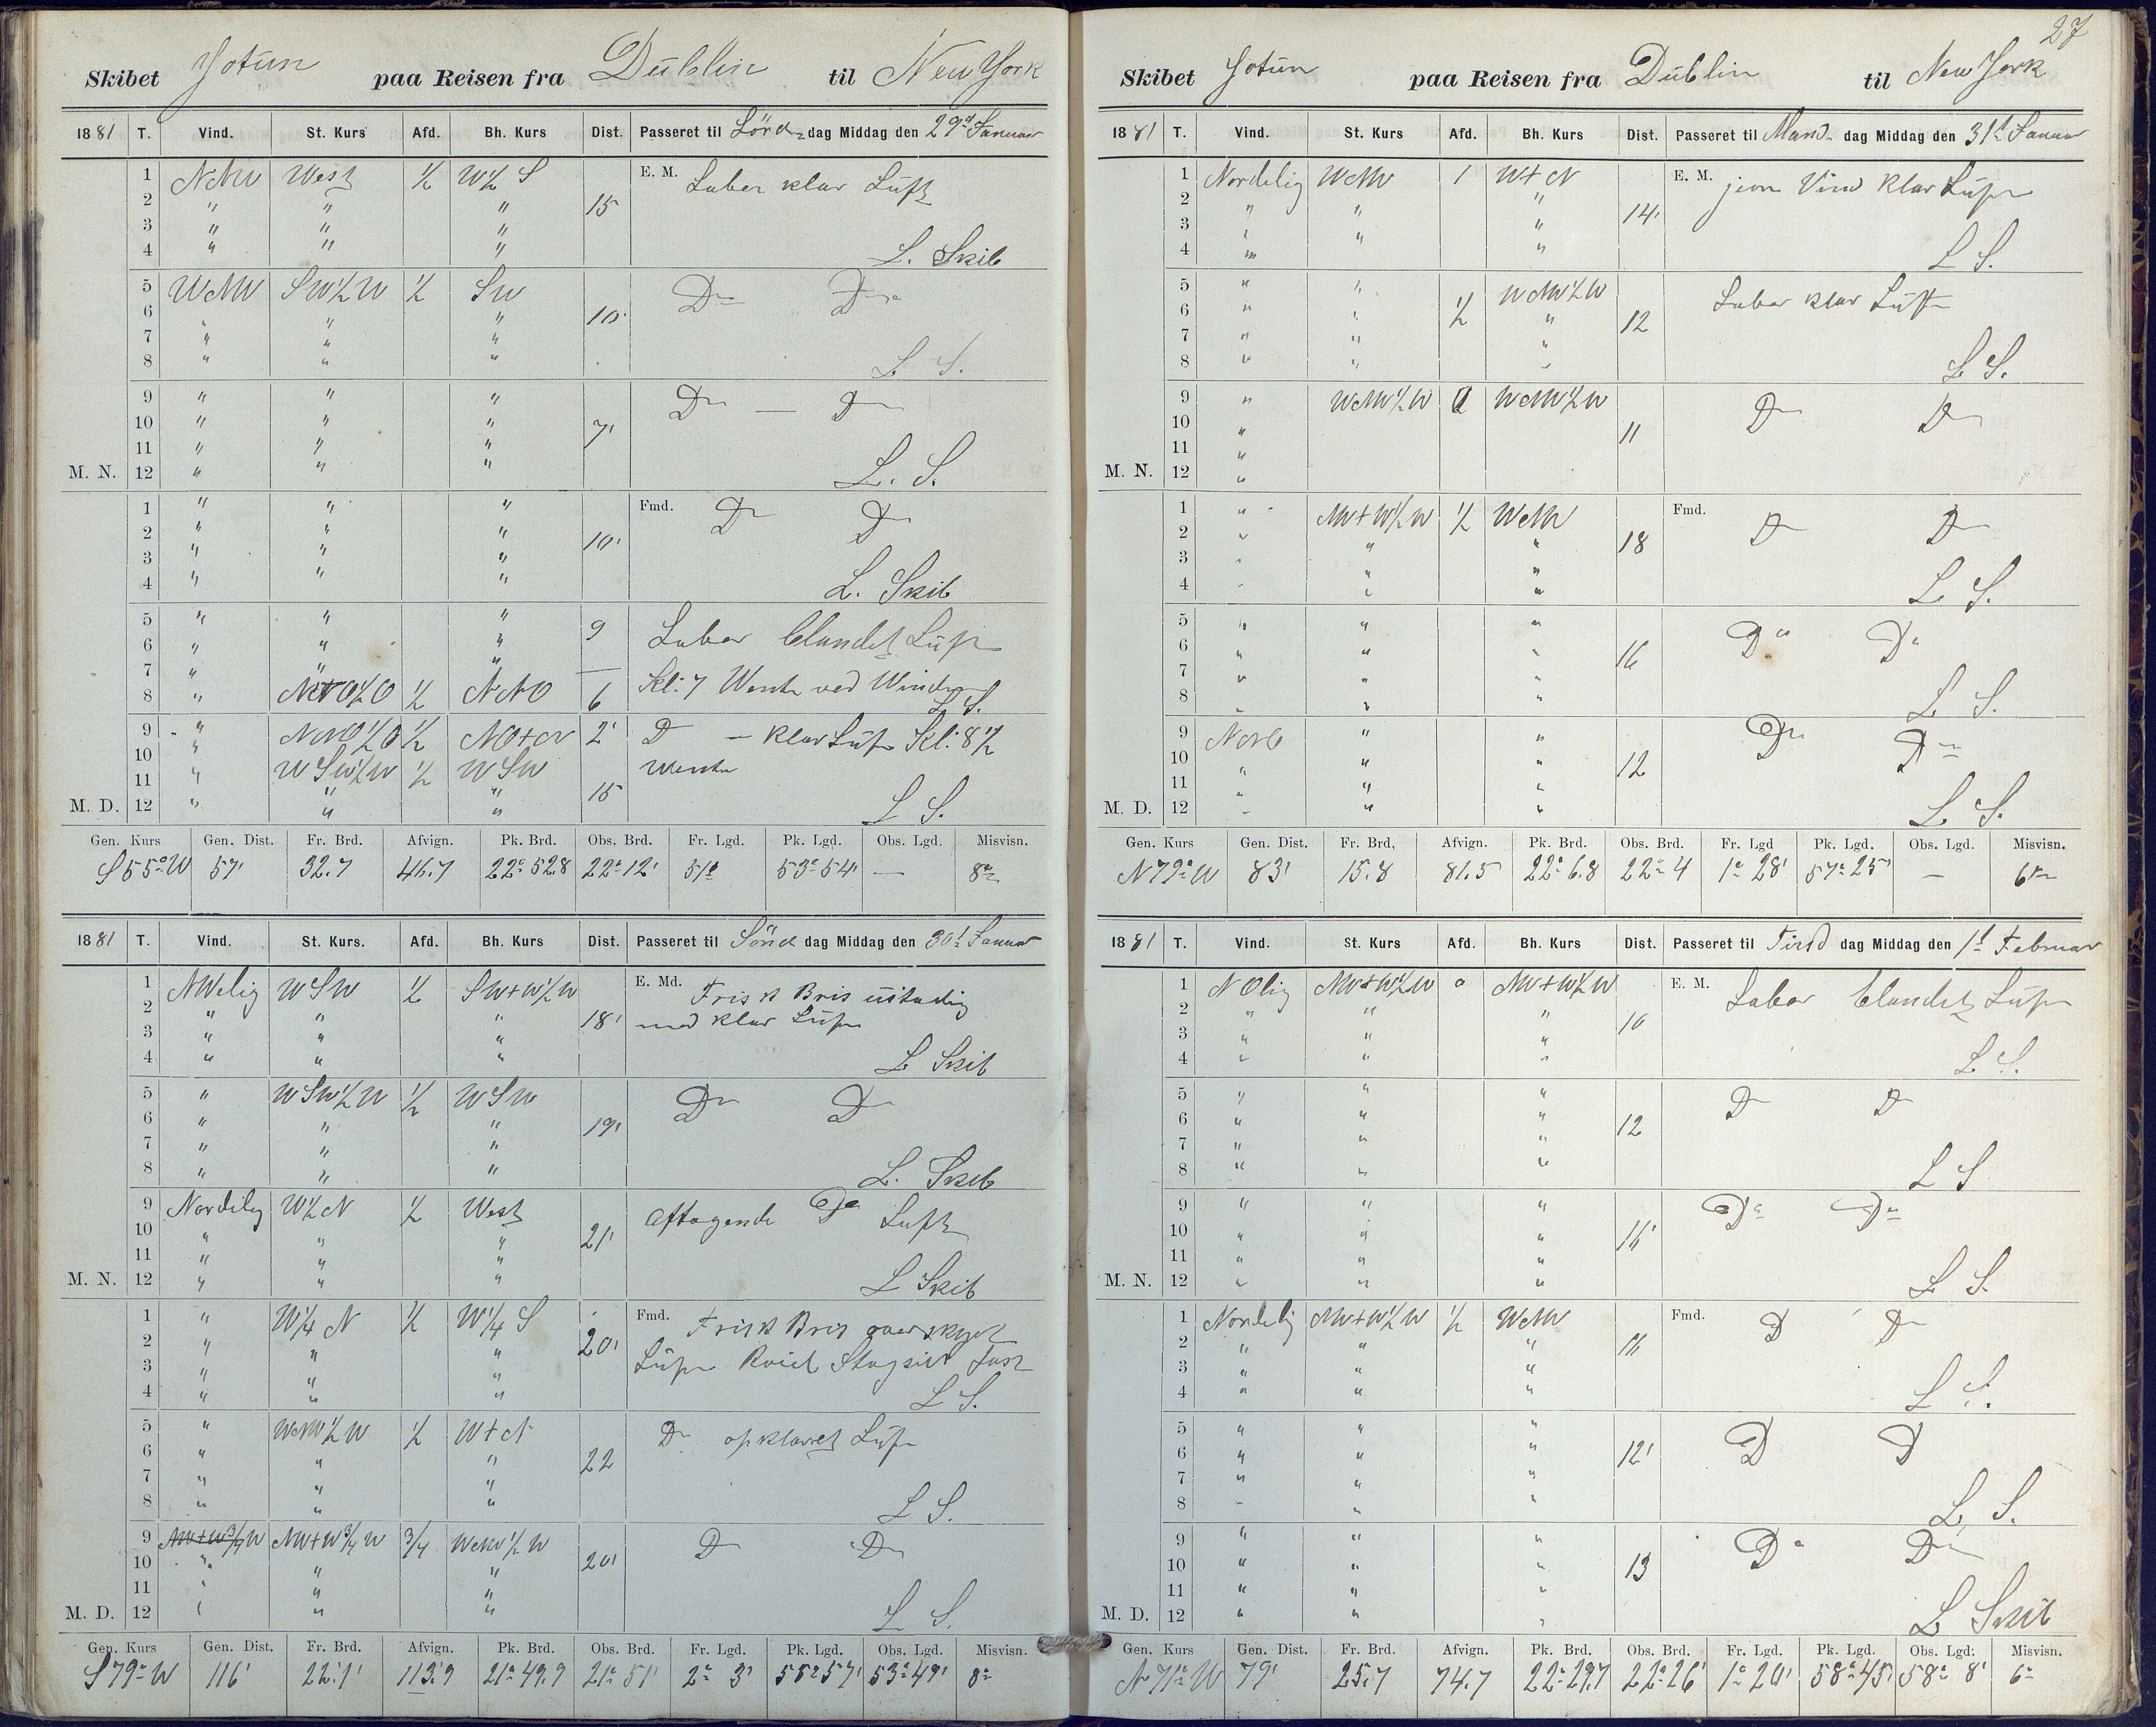 Skibet Jotun paa Reisen fra Dublin til New York
1881 T. Vind. St. Kurs Afd. Bh. Kurs Dist. Passeret til Lörd dag Middag den 29d Januar
1 NNW West ½ W½ S E. M. Laber klar Luft
2 " " " 15
3 " " "
4 " " " L. Skib
5 WNW SW½W ½ SW Do Do
6 " " " 10'
7 " " "
8 " " " L S.
9 " " " Do — Do
10 " " " 7'
11 " " "
M. N. 12 " " " L. S.
1 " " " Fmd. Do Do
2 " " " 10'
3 " " "
4 " " " L. Skib
5 " " " 9 Laber blandet Luft
6 " " "
7 " " " Kl: 7 Wente ved Winden
8 " ½ NNO 6 L S.
9 " ½ NO+N 2' D — klar Luft Kl: 8½
10 " WSW½W ½ WSW Wente
11 " " " 15
M. D. 12 " " " L S.
Gen. Kurs Gen. Dist. Fr. Brd. Afvign. Pk. Brd. Obs. Brd. Fr. Lgd. Pk. Lgd. Obs. Lgd. Misvisn.
S 55° W 57' 32.7 46.7 22° 52.8 22° 12' 51' 53° 54' — 8°
1881 T. Vind. St. Kurs. Afd. Bh. Kurs Dist. Passeret til Sönd dag Middag den 30t Januar
1 NWelig WSW ½ SW+W½W E. Md. Frisk Bris ustadig
2 " " " 18' med klar Luft
3 " " "
4 " " " L Skib
5 " WSW½W ½ WSW Do Do
6 " " " 19'
7 " " "
8 " " " L. Skib
9 Nordelig W½N ½ West Aftagende Do Luft
10 " " " 21'
11 " " "
M. N. 12 " " " L Skib
1 " W¼ N ½ W¼ S Fmd. Frisk Bris overskyet
2 " " " 20' Luft Stagseil fast
3 " " "
4 " " " L S.
5 " WNW½W ½ W+N Do opklaret Luft
6 " " " 22
7 " " "
8 " " " L S.
9 NW+W¾W NW+W¾W ¾ WNW½W Do Do
10 " " " 20'
11 " " "
M. D. 12 " " " L S.
Gen. Kurs Gen. Dist. Fr. Brd. Afvign. Pk. Brd. Obs. Brd. Fr. Lgd. Pk. Lgd. Obs. Lgd. Misvisn.
S 79° W 116' 22.1' 113.9 21° 49.9 21° 51' 2° 3' 55° 57' 53° 49' 8°
27
Skibet Jotun paa Reisen fra Dublin til New York
1881 T. Vind. St. Kurs Afd. Bh. Kurs Dist. Passeret til Mand dag Middag den 31t Januar
1 Nordelig WNW 1 W+N E. M. jevn Vind klar Luft
2 " " " 14'
3 " " "
4 " " L S.
5 " " WNW½W Laber klar Luft
6 " " ½ " 12
7 " " "
8 " " " L S.
9 " WNW½W 0 WNW½W Do Do
10 " 11
11 "
M. N. 12 "
1 " NW+W½W ½ WNW Fmd. Do Do
2 " " " 18
3 " " "
4 " " " L S.
5 " " " Do Do
6 " " " 16
7 " " "
8 " " " L S.
9 Nord " " Do Do
10 " " " 12
11 " " "
M. D. 12 " " " L S.
Gen. Kurs Gen. Dist. Fr. Brd, Afvign. Pk. Brd. Obs. Brd. Fr. Lgd Pk. Lgd. Obs. Lgd. Misvisn.
N 79° W 83' 15.8 81.5 22° 6.8 22° 4 1° 28' 57° 25' — 6°
1881 T. Vind. St. Kurs Afd. Bh. Kurs Dist. Passeret til Tirsd dag Middag den 1t Februar
1 NOlig NW+W½W 0 NW+W½W E. M. Laber blandet Luft
2 " " " 10
3 " " "
4 " " " L S.
5 " " " D D
6 " " " 12
7 " " "
8 " " " L S
9 " " " Do Do
10 " " "
11 " " "
M. N. 12 " " " L S.
1 Nordelig NW+W½W ½ WNW Fmd. D Do
2 " " "
3 " " "
4 " " " L S.
5 " " " D D
6 " " " 12'
7 " " "
8 " " " L S.
9 " " " Do Do
10 " " " 13
11 " " "
M. D. 12 " " " L Skib
Gen. Kurs Gen. Dist. Fr. Brd. Afvign. Pk. Brd. Obs. Brd. Fr. Lgd. Pk. Lgd. Obs. Lgd: Misvisn.
N 71° W 79' 25.7 74.7 22° 29.7 22° 26' 1° 20' 58° 45' 58° 8' 6°